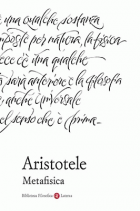 una qualche sostanza
per natura, la fisica
c'è una qualche
sarà anteriore e la filosofia
anche universale
nel senso che è prima
Aristotele
Metafisica
Biblioteca Filosofica Laterza